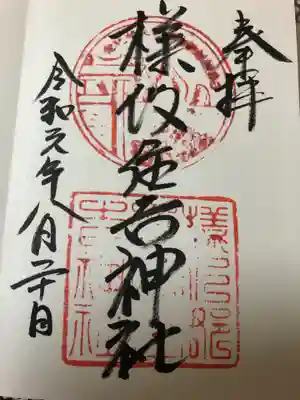 奉拝
様似住吉神社
令和元年八月二十日